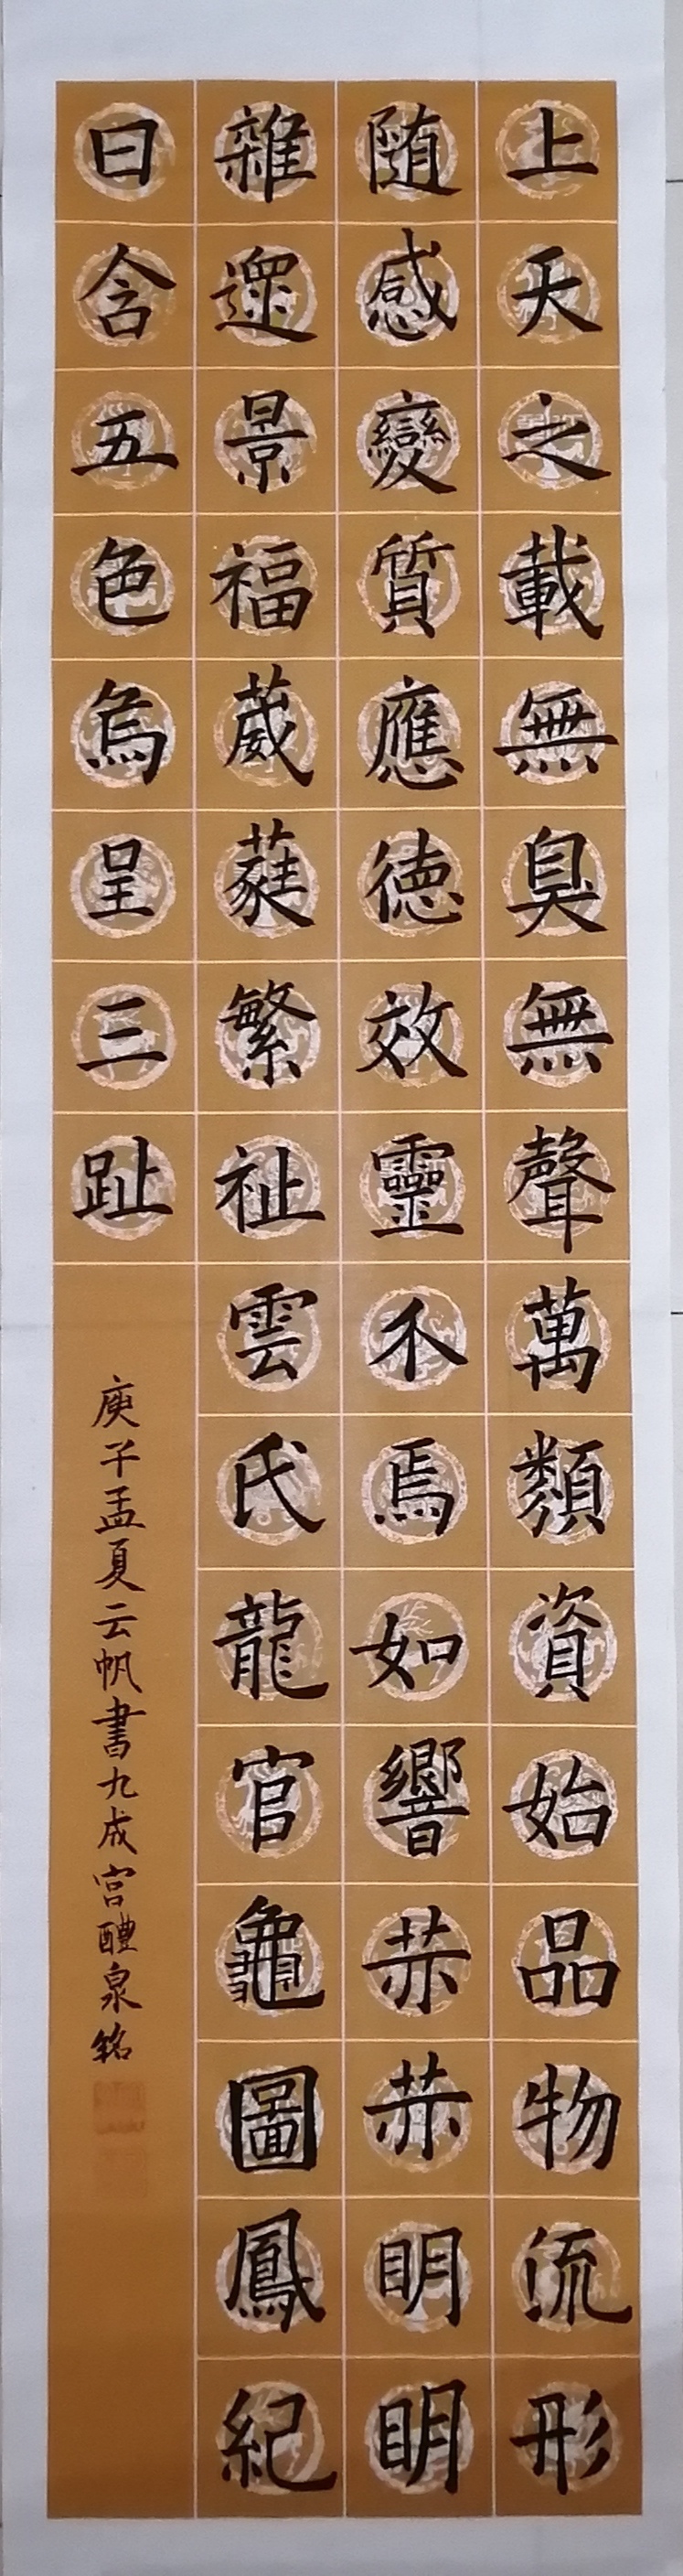 上天之載無臭無聲萬類資始品物流形
随感變質應德效靈介焉如響赫赫眀眀
雜遝景福葳蕤繁祉雲氏龍官龜圖鳳紀
日含五色烏呈三趾
庚子孟夏云帆書九成宮醴泉銘